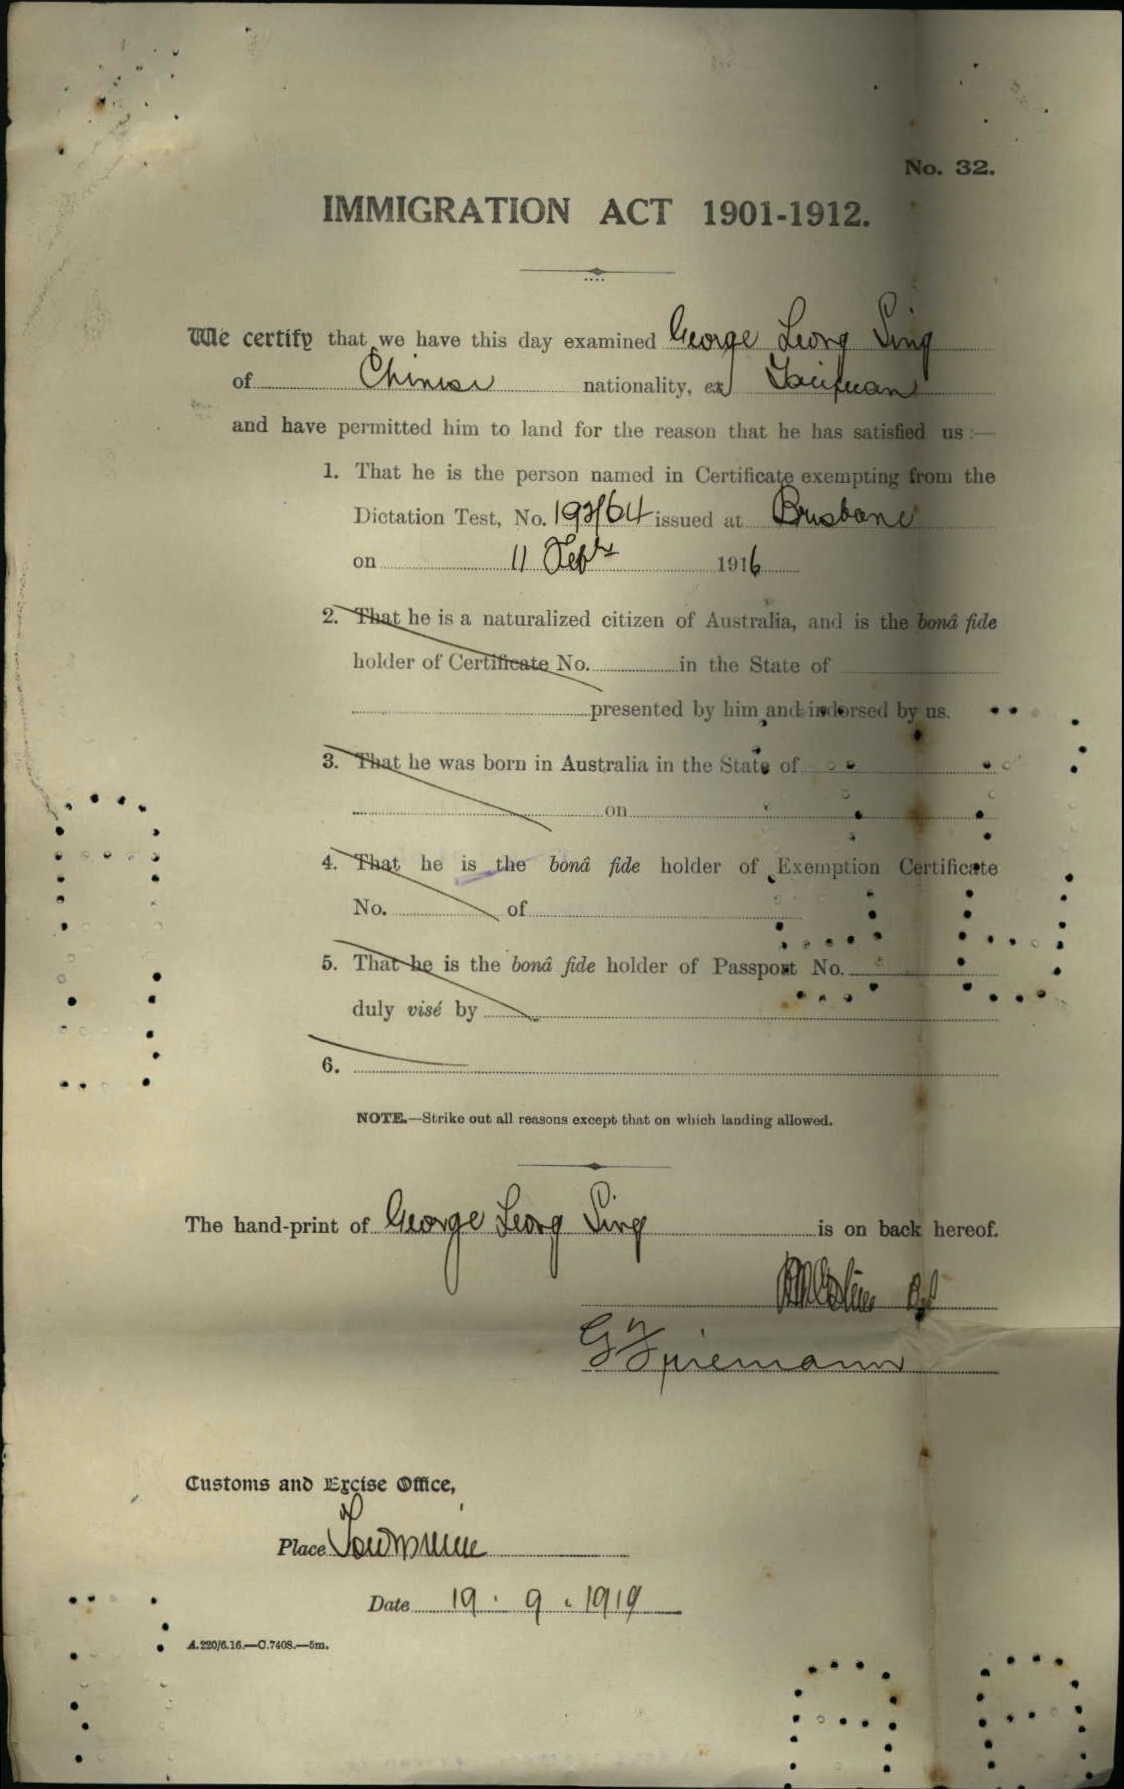 No. 32.
IMMIGRATION ACT 1901-1912.
We certify that we have this day examined George Leong Sing
of Chinese nationality, ex Taiyuan
and have permitted him to land for the reason that he has satisfied us :—
1. That he is the person named in Certificate exempting from the
Dictation Test, No. 192/64 issued at Brisbane
on 11 Septr 1916
2. That he is a naturalized citizen of Australia, and is the bonâ fide
holder of Certificate No. in the State of
presented by him and indorsed by us.
3. That he was born in Australia in the State of
on
4. That he is the bonâ fide holder of Exemption Certificate
No. of
5. That he is the bonâ fide holder of Passport No.
duly visé by
6.
NOTE.—Strike out all reasons except that on which landing allowed.
The hand-print of George Leong Sing is on back hereof.
Customs and Excise Office,
Place Townsville
Date 19 . 9 . 1919
A.220/6.16.—C.7408.—5m.